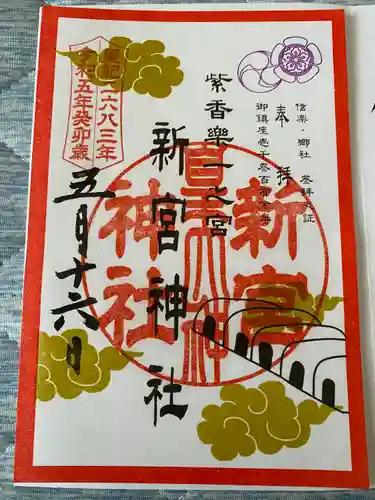 信楽・郷社 参拝之証
奉拝
御鎮座壱千参百
紫香樂一之宮
新宮神社
新宮
神社
皇紀二六八三年
令和五年癸卯歳
五月十六日